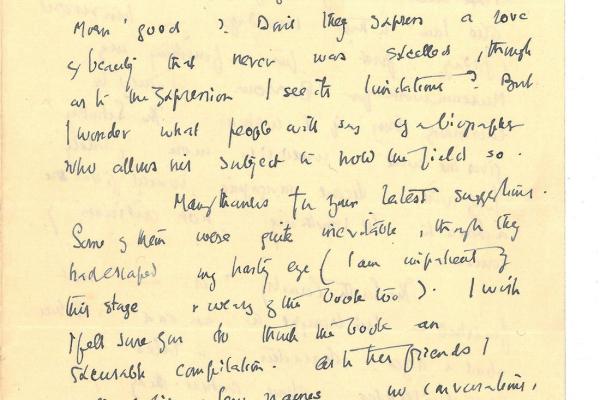 mean 'good'? Don't they express a love
of beauty that never was excelled, though
as to the expression I see its limitations? But
I wonder what people will say of a biographer
who allows his subject to hold the field so.
Many thanks for your latest suggestions.
Some of them were quite inevitable, though they
had escaped my hasty eye (I am impatient of
this stage & weary of the book too). I wish
I felt sure you do think the book an
excusable compilation. As to her friends I
names no conversations,